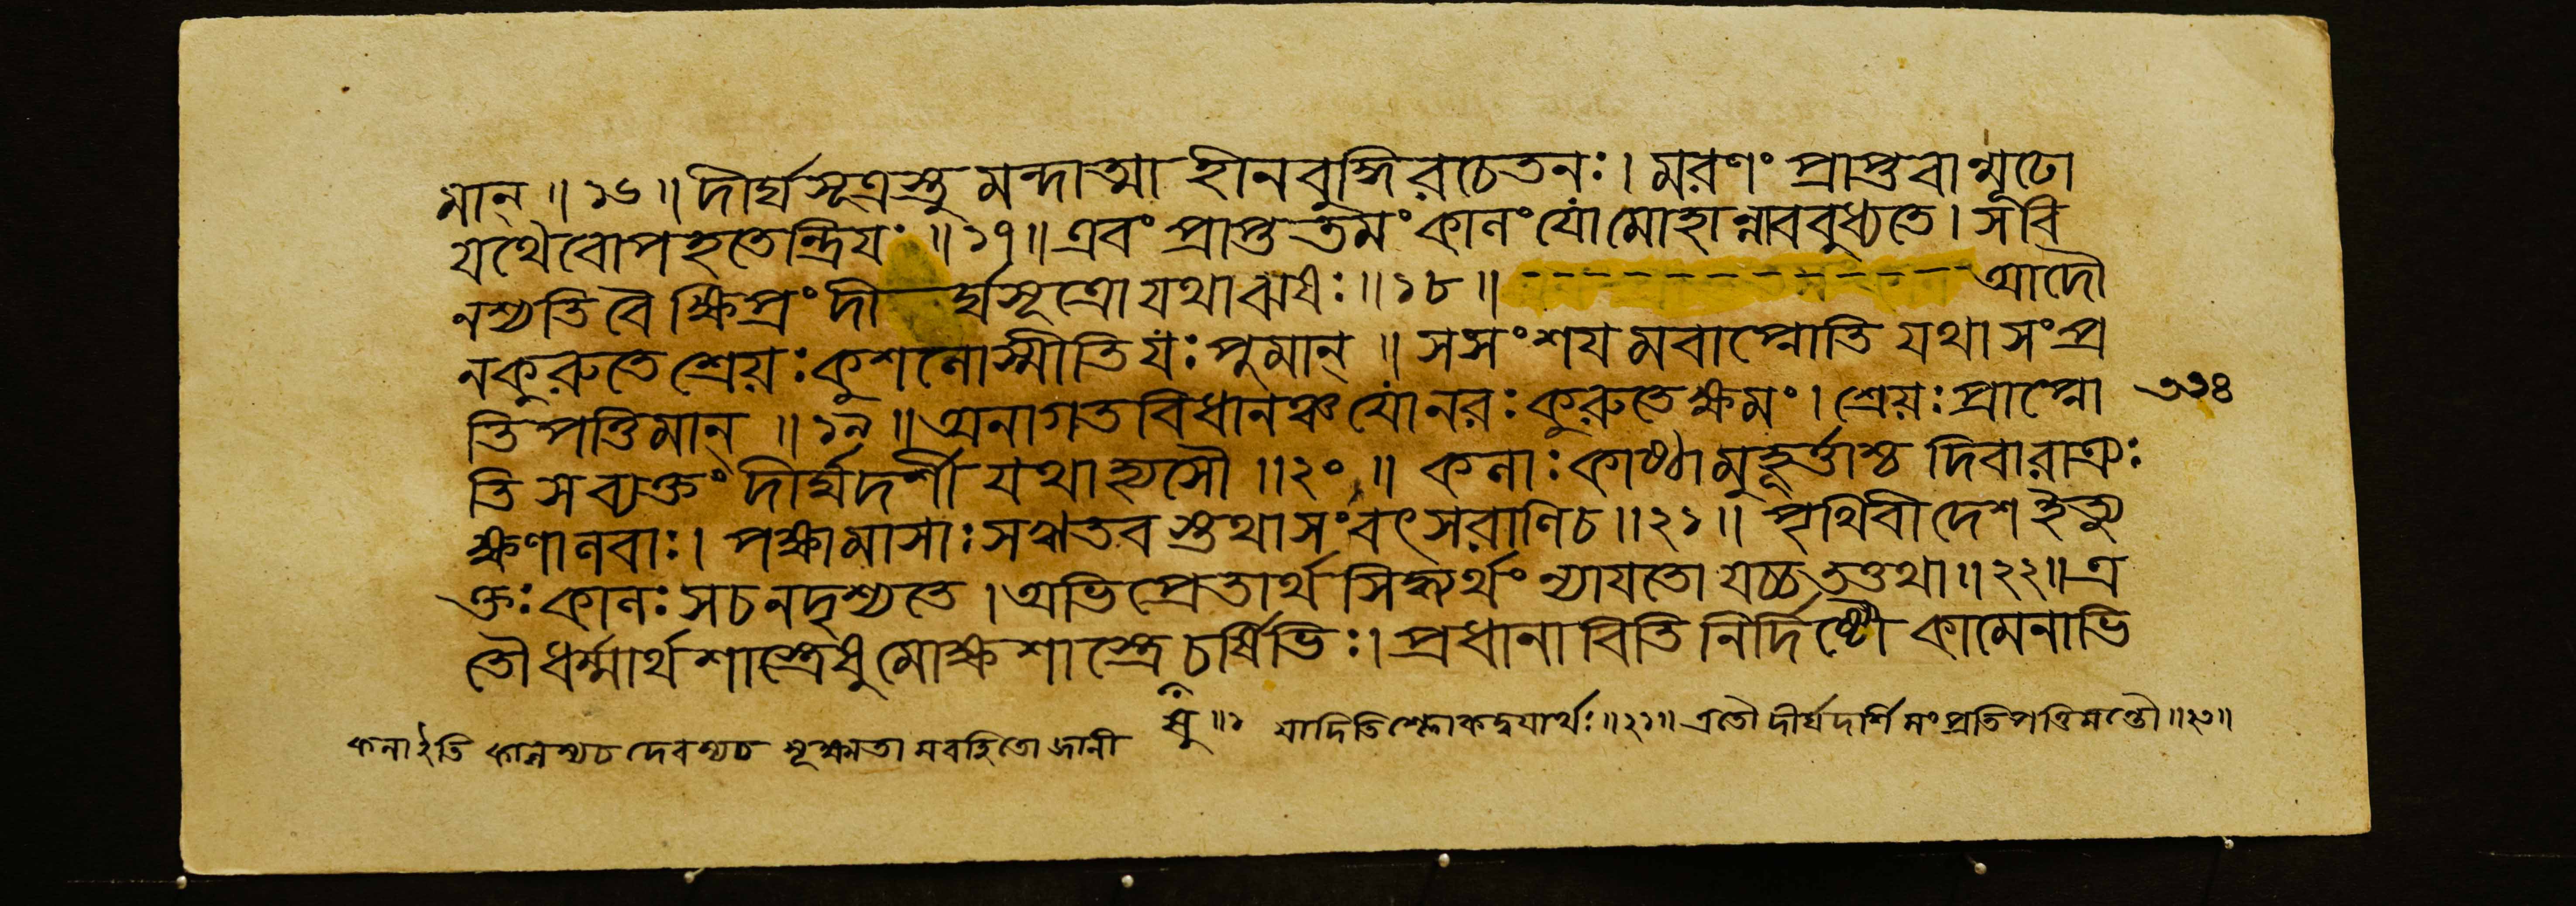 মান্ ॥ ১৬ ॥ দীর্ঘসূত্রস্তু মন্দাত্মা হীনবুদ্ধিরচেতনঃ । মরণং প্রাপ্তবান্মূঢো
যথৈবোপহতেন্দ্রিযঃ ॥ ১৭ ॥ এবং প্রাপ্ততমং কালং যো মোহান্নাববুধ্যতে । স বি
নশ্যতি বৈ ক্ষিপ্রং দীর্ঘসূত্রো যথা ঝষঃ ॥ ১৮ ॥ আদৌ
ন কুরুতে শ্রেয়ঃ কুশলোস্মীতি যঃ পুমান্ ॥ স সংশযমবাপ্নোতি যথা সংপ্র
তিপত্তিমান্ ॥ ১৯ ॥ অনাগতবিধানঞ্চ যো নরঃ কুরুতে ক্ষমং । শ্রেয়ঃ প্রাপ্নো
৩৩৪
তি স ব্যক্তং দীর্ঘদর্শী যথা হ্যসৌ ॥ ২০ ॥ কলাঃ কাষ্ঠা মুহূর্ত্তাশ্চ দিবারাত্রঃ
ক্ষণা লবাঃ । পক্ষা মাসাঃ সষড়তবস্তথা সংবৎসরাণি চ ॥ ২১ ॥ পৃথিবী দেশ ইত্যু
ক্তঃ কালঃ স চ ন দৃশ্যতে । অভিপ্রেতার্থসিদ্ধ্যর্থং ন্যাযতো যচ্চ তত্তথা ॥ ২২ ॥ এ
তৌ ধর্ম্মার্থশাস্ত্রেষু মোক্ষশাস্ত্রে চর্ষিভিঃ । প্রধানাবিতি নির্দিষ্টৌ কামেনাভি
কলা ইতি কালস্যচ দেবস্যচ সূক্ষ্মতামবহিতো জানী
যাদিতি শ্লোকদ্বযার্থঃ ॥ ২১ ॥ এতৌ দীর্ঘদর্শিসংপ্রতিপত্তিমন্তৌ ॥ ২৩ ॥